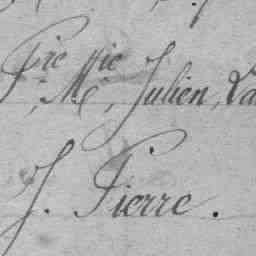 Pre Mie, Julien, La
J. Pierre.